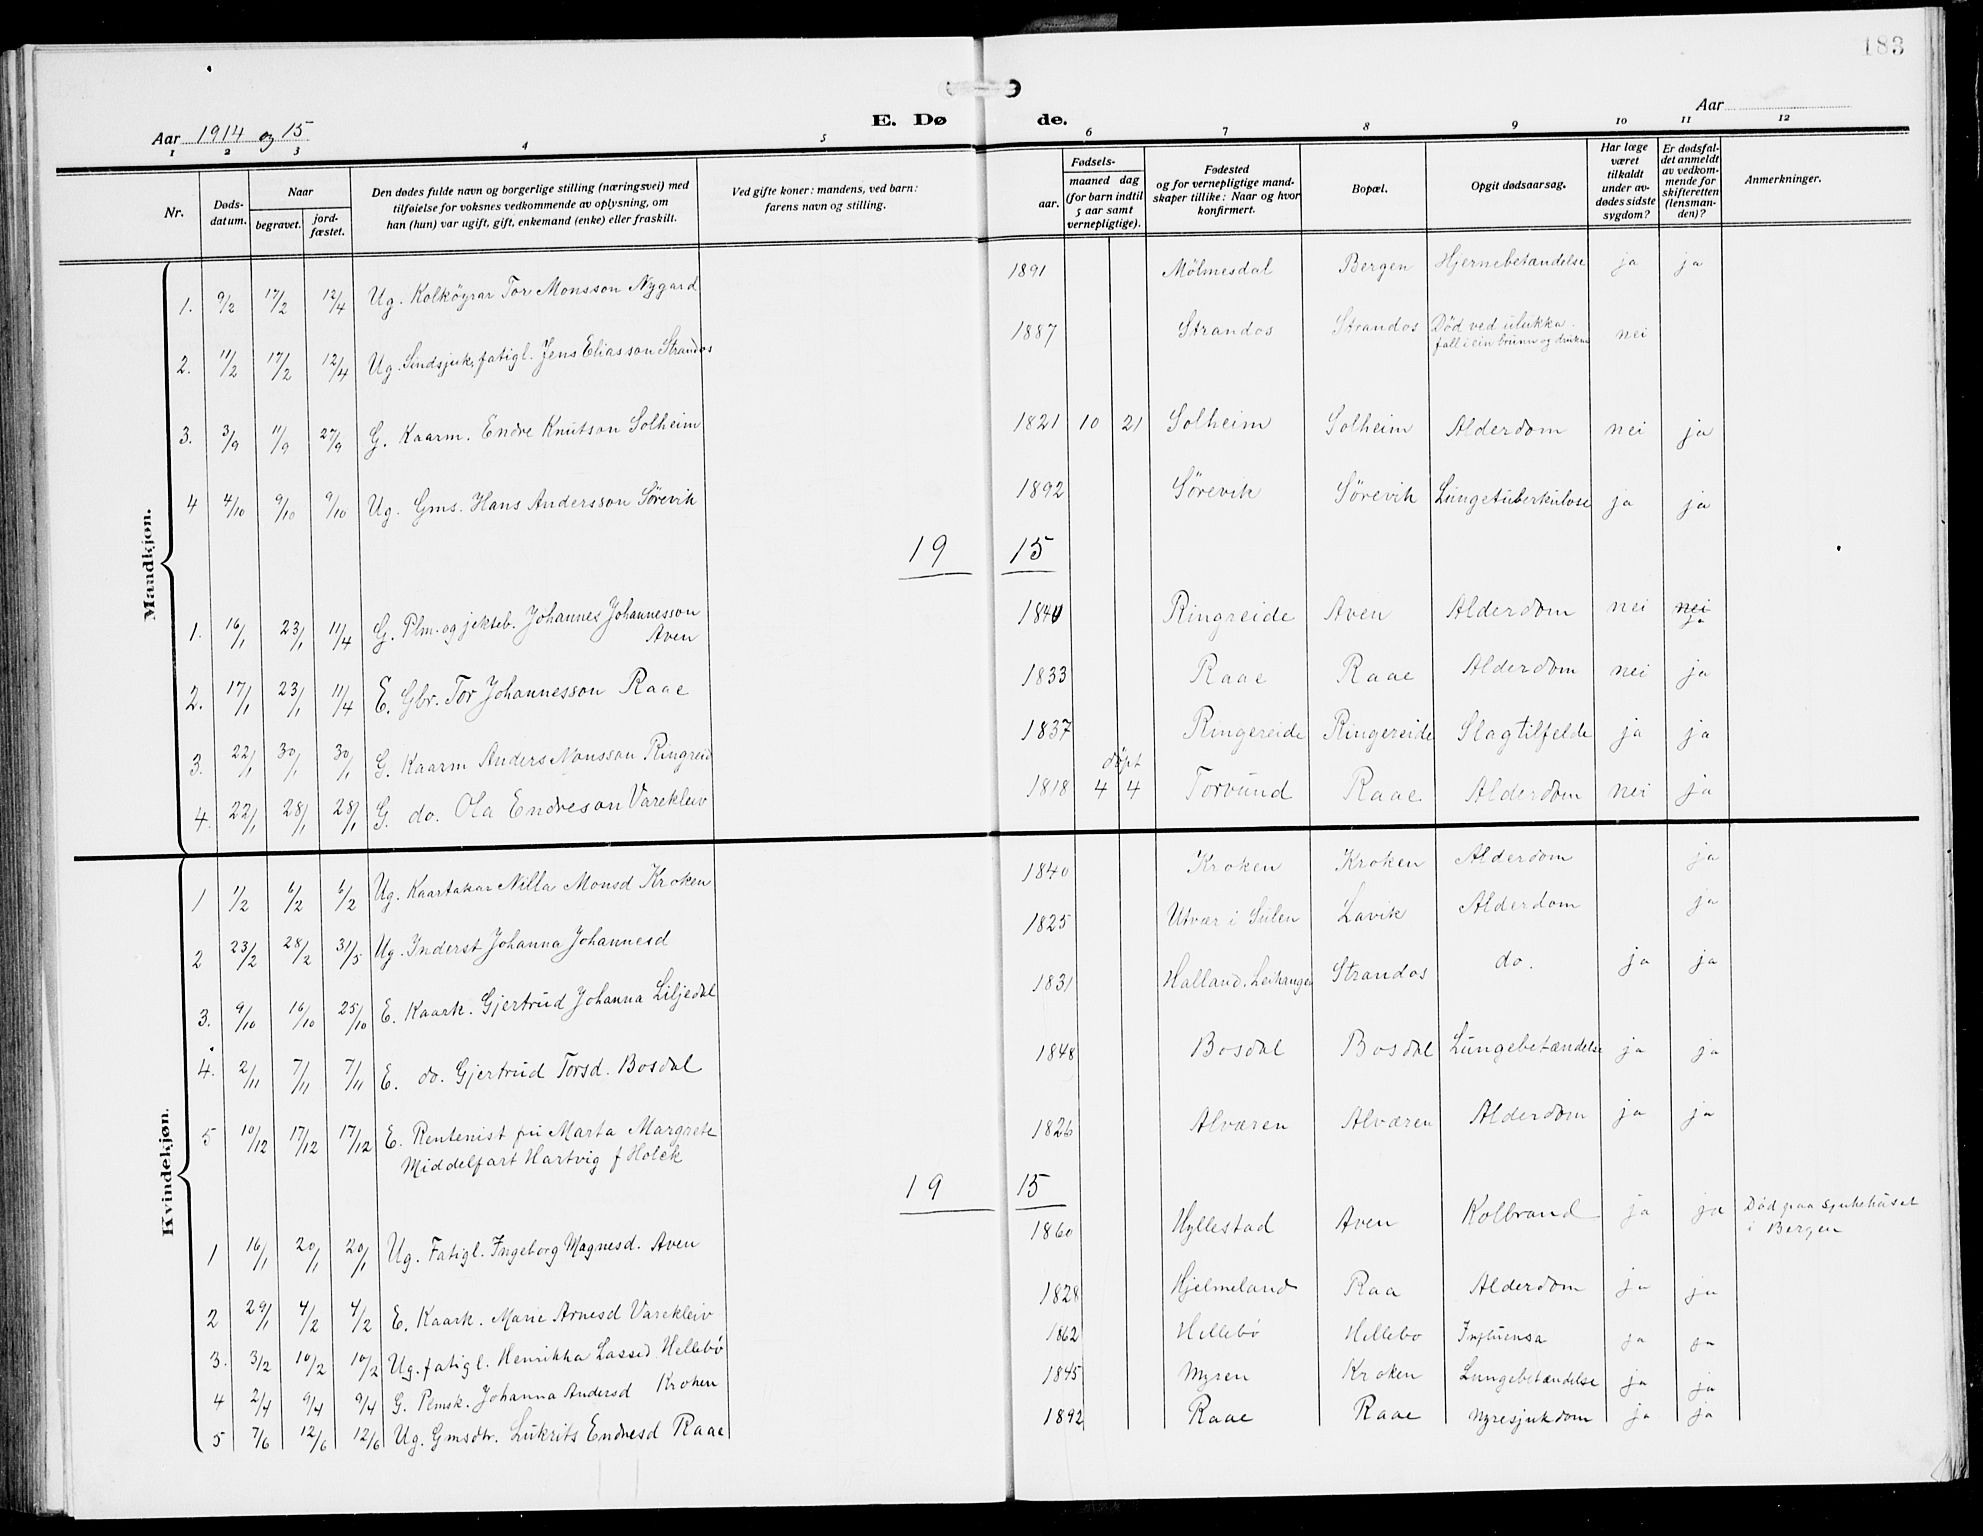 183
Aar 1914 og 15
E. Dø de.
Aar
1 2 3 4 5 6 7 8 9 10 11 12
Nr.
Døds-
datum.
Naar
begravet.
jord-
fæstet.
Den dødes fulde navn og borgerlige stilling (næringsvei) med
tilføielse for voksnes vedkommende av oplysning, om
han (hun) var ugift, gift, enkemand (enke) eller fraskilt.
Ved gifte koner: mandens, ved barn:
farens navn og stilling.
Fødsels-
aar.
maaned dag
(for barn indtil
5 aar samt
vernepligtige).
Fødested
og for vernepligtige mand-
skaper tillike: Naar og hvor
konfirmert.
Bopæl.
Opgit dødsaarsag.
Har læge
været
tilkaldt
under av-
dødes sidste
sygdom?
Er dødsfal-
det anmeldt
av vedkom-
mende for
skifteretten
(lensman-
den)?
Anmerkninger.
Mandkjøn.
1. 9/2 17/2 12/4 Ug. Kolkøyrar Tor Monsson Nygard 1891 Mølmesdal Bergen Hjernebetændelse ja ja
2. 11/2 17/2 12/4 Ug. Sindsjuk, fatigl. Jens Eliasson Strandos 1887 Strandos Strandos Død ved ulukka. nei
fall i ein brunn og
3. 3/9 11/9 27/9 G. Kaarm. Endre Knutson Solheim 1821 10 21 Solheim Solheim Alderdom nei ja
4 4/10 9/10 9/10 Ug. Gms. Hans Andersson Sørevik 1892 Sørevik Sørevik Lungetuberkulose ja ja
19 15
1. 16/1 23/1 11/4 G. Plm. og jekteb. Johannes Johannesson Aven Ringreide Aven Alderdom nei nei ja
2. 17/1 23/1 11/4 E. Gbr. Tor Johannesson Raae 1833 Raae Raae Alderdom nei ja
3. 22/1 30/1 30/1 G. Kaarm Anders Monsson Ringreid 1837 Ringereide Ringereide Slagtilfelde ja ja
døpt
4. 22/1 28/1 28/1 G. do. Ola Endreson Varekleiv 1818 4 4 Torvund Raae Alderdom nei ja
Kvindekjøn.
1 1/2 6/2 6/2 Ug. Kaartakar Nilla Monsd Kroken 1840 Kroken Kroken Alderdom ja
2 23/2 28/2 31/5 Ug. Inderst Johanna Johannesd 1825 Utvær i Sulen Lavik Alderdom ja
3. 9/10 16/10 25/10 E. Kaark. Gjertrud Johanna Liljedal 1831 Halland, Leikanger Strandos do. ja ja
4. 2/11 7/11 7/11 E. do. Gjertrud Torsd. Bosdal 1848 Bosdal Bosdal Lungebetændelse ja ja
5 10/12 17/12 17/12 E. Rentenist fru Marta Margrete 1826 Alværen Alværen Alderdom ja ja
Middelfart Hartvig f Holck
19 15
1 16/1 20/1 20/1 Ug. Fatigl. Ingeborg Magnesd. Aven 1860 Hyllestad Aven Kolbrand ja ja Død paa sjukehuset
i Bergen
2 29/1 4/2 4/2 E. Kaark. Marie Arnesd Varekleiv 1828 Hjelmeland Raa Alderdom ja ja
3. 3/2 10/2 10/2 Ug. fatigl. Henrikka Lassed Hellebø 1862 Hellebø Hellebø Influensa ja ja
4 2/4 9/4 9/4 G. Plmsk. Johanna Andersd Kroken 1845 Myren Kroken Lungebetændelse ja ja
5 7/6 12/6 12/6 Ug. Gmsdtr. Lukrits Endresd Raae 1892 Raae Raae Nyresjukdom ja ja